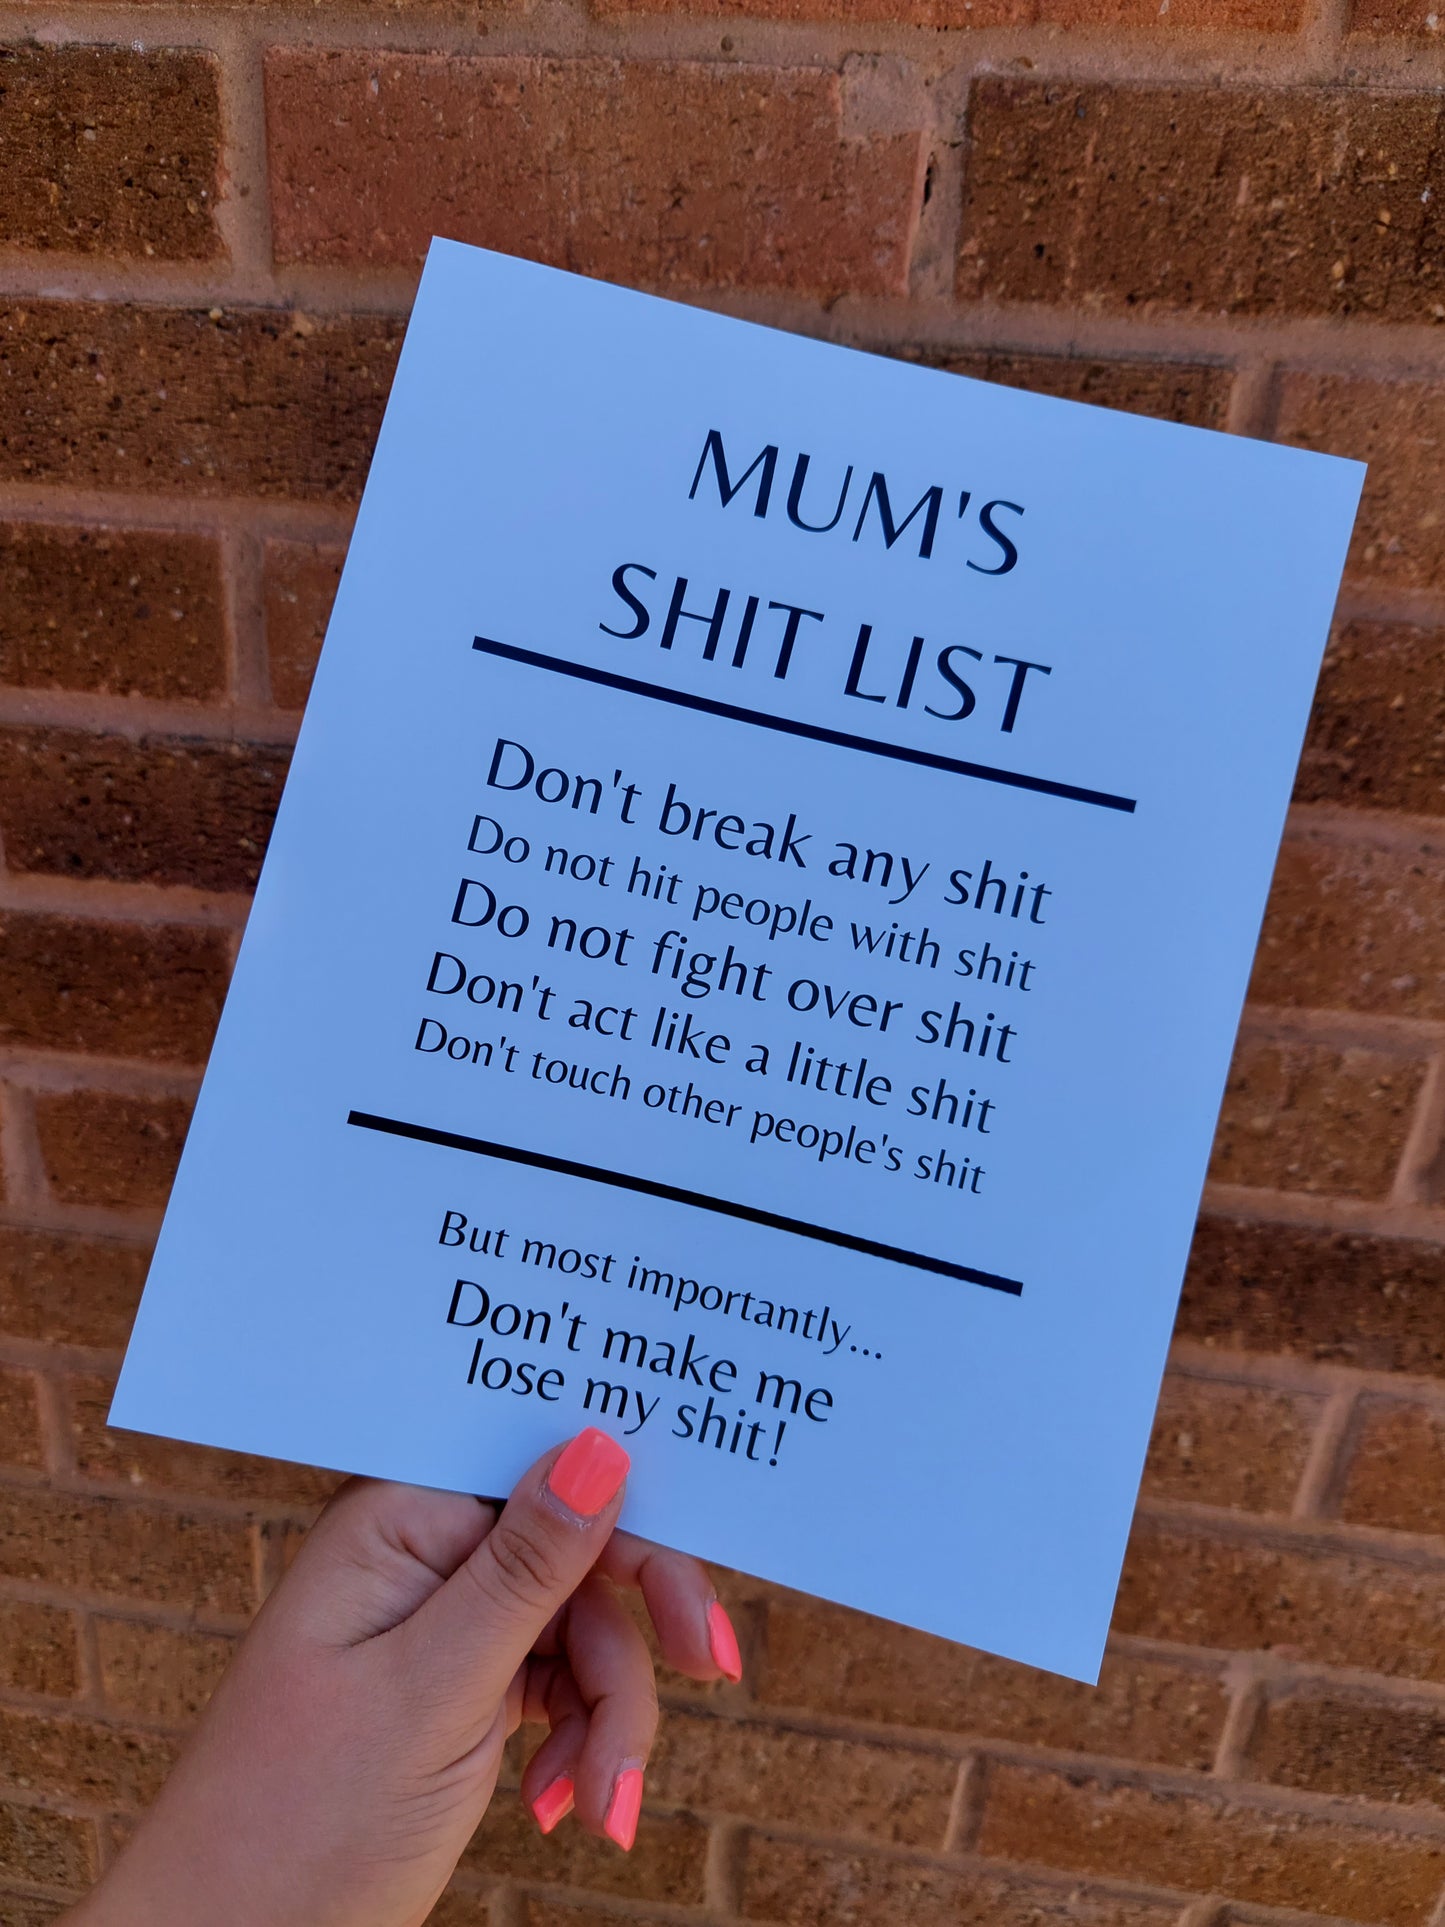 MUM'S
SHIT LIST
Don't break any shit
Do not hit people with shit
Do not fight over shit
Don't act like a little shit
Don't touch other people's shit
But most importantly...
Don't make me
lose my shit!